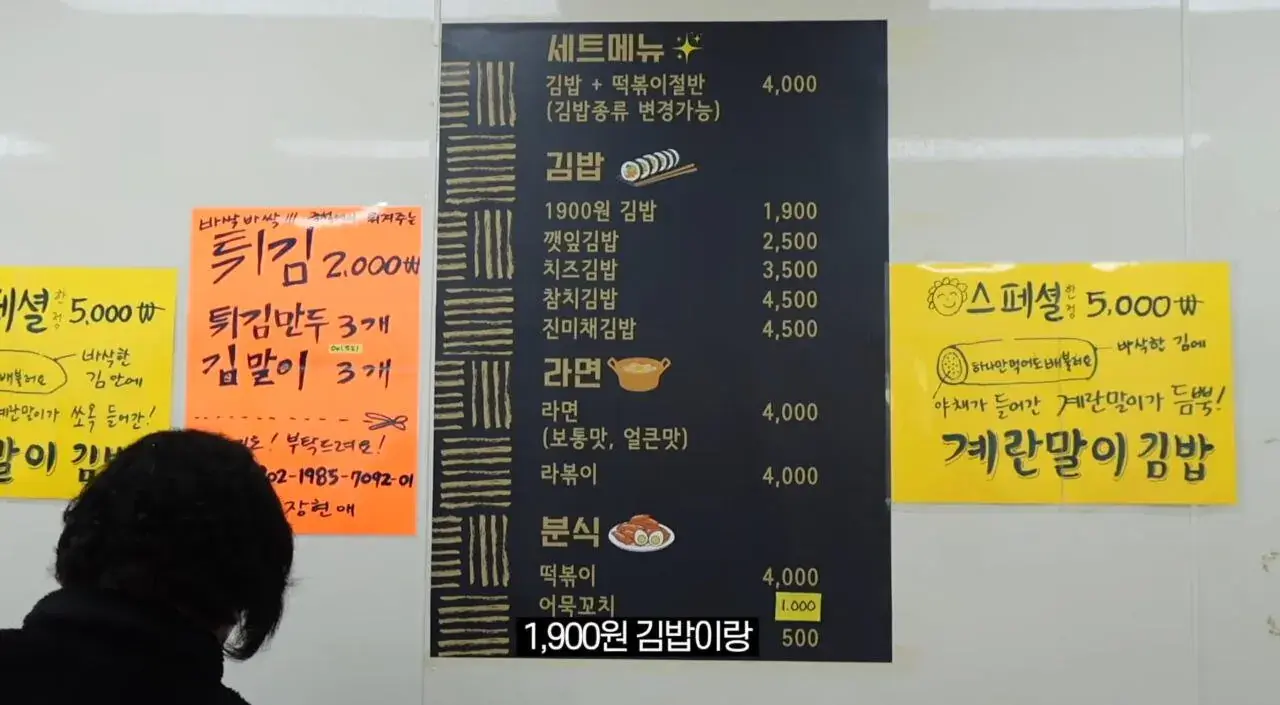 세트메뉴
김밥 + 떡볶이절반 4,000
(김밥종류 변경가능)
김밥
1900원 김밥 1,900
깻잎김밥 2,500
치즈김밥 3,500
참치김밥 4,500
진미채김밥 4,500
라면
라면 4,000
(보통맛, 얼큰맛)
라볶이 4,000
분식
떡볶이 4,000
어묵꼬치 1.000
500
1,900원 김밥이랑
바삭바삭!!! 튀겨주는
튀김 2,000₩
튀김만두 3개
김말이 3개
부탁드려요!
02-1985-7092-01
장현애
셜 한정 5,000₩
바삭한
김안에
배불러요
계란말이가 쏘옥 들어간!
말이 김
스페셜 한정 5,000₩
하나만먹어도배불러요
바삭한 김에
야채가 들어간 계란말이가 듬뿍!
계란말이김밥